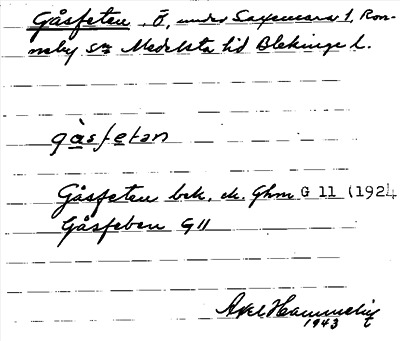 Gåsfeten, Ö, under Saxemara 1, Ron-
neby sn Medelsta hd Blekinge l.
gàsfetan
Gåsfeten bek. ek. Ghm G 11 (1924
Gåsfeten G11
Axel Hammelin
1943